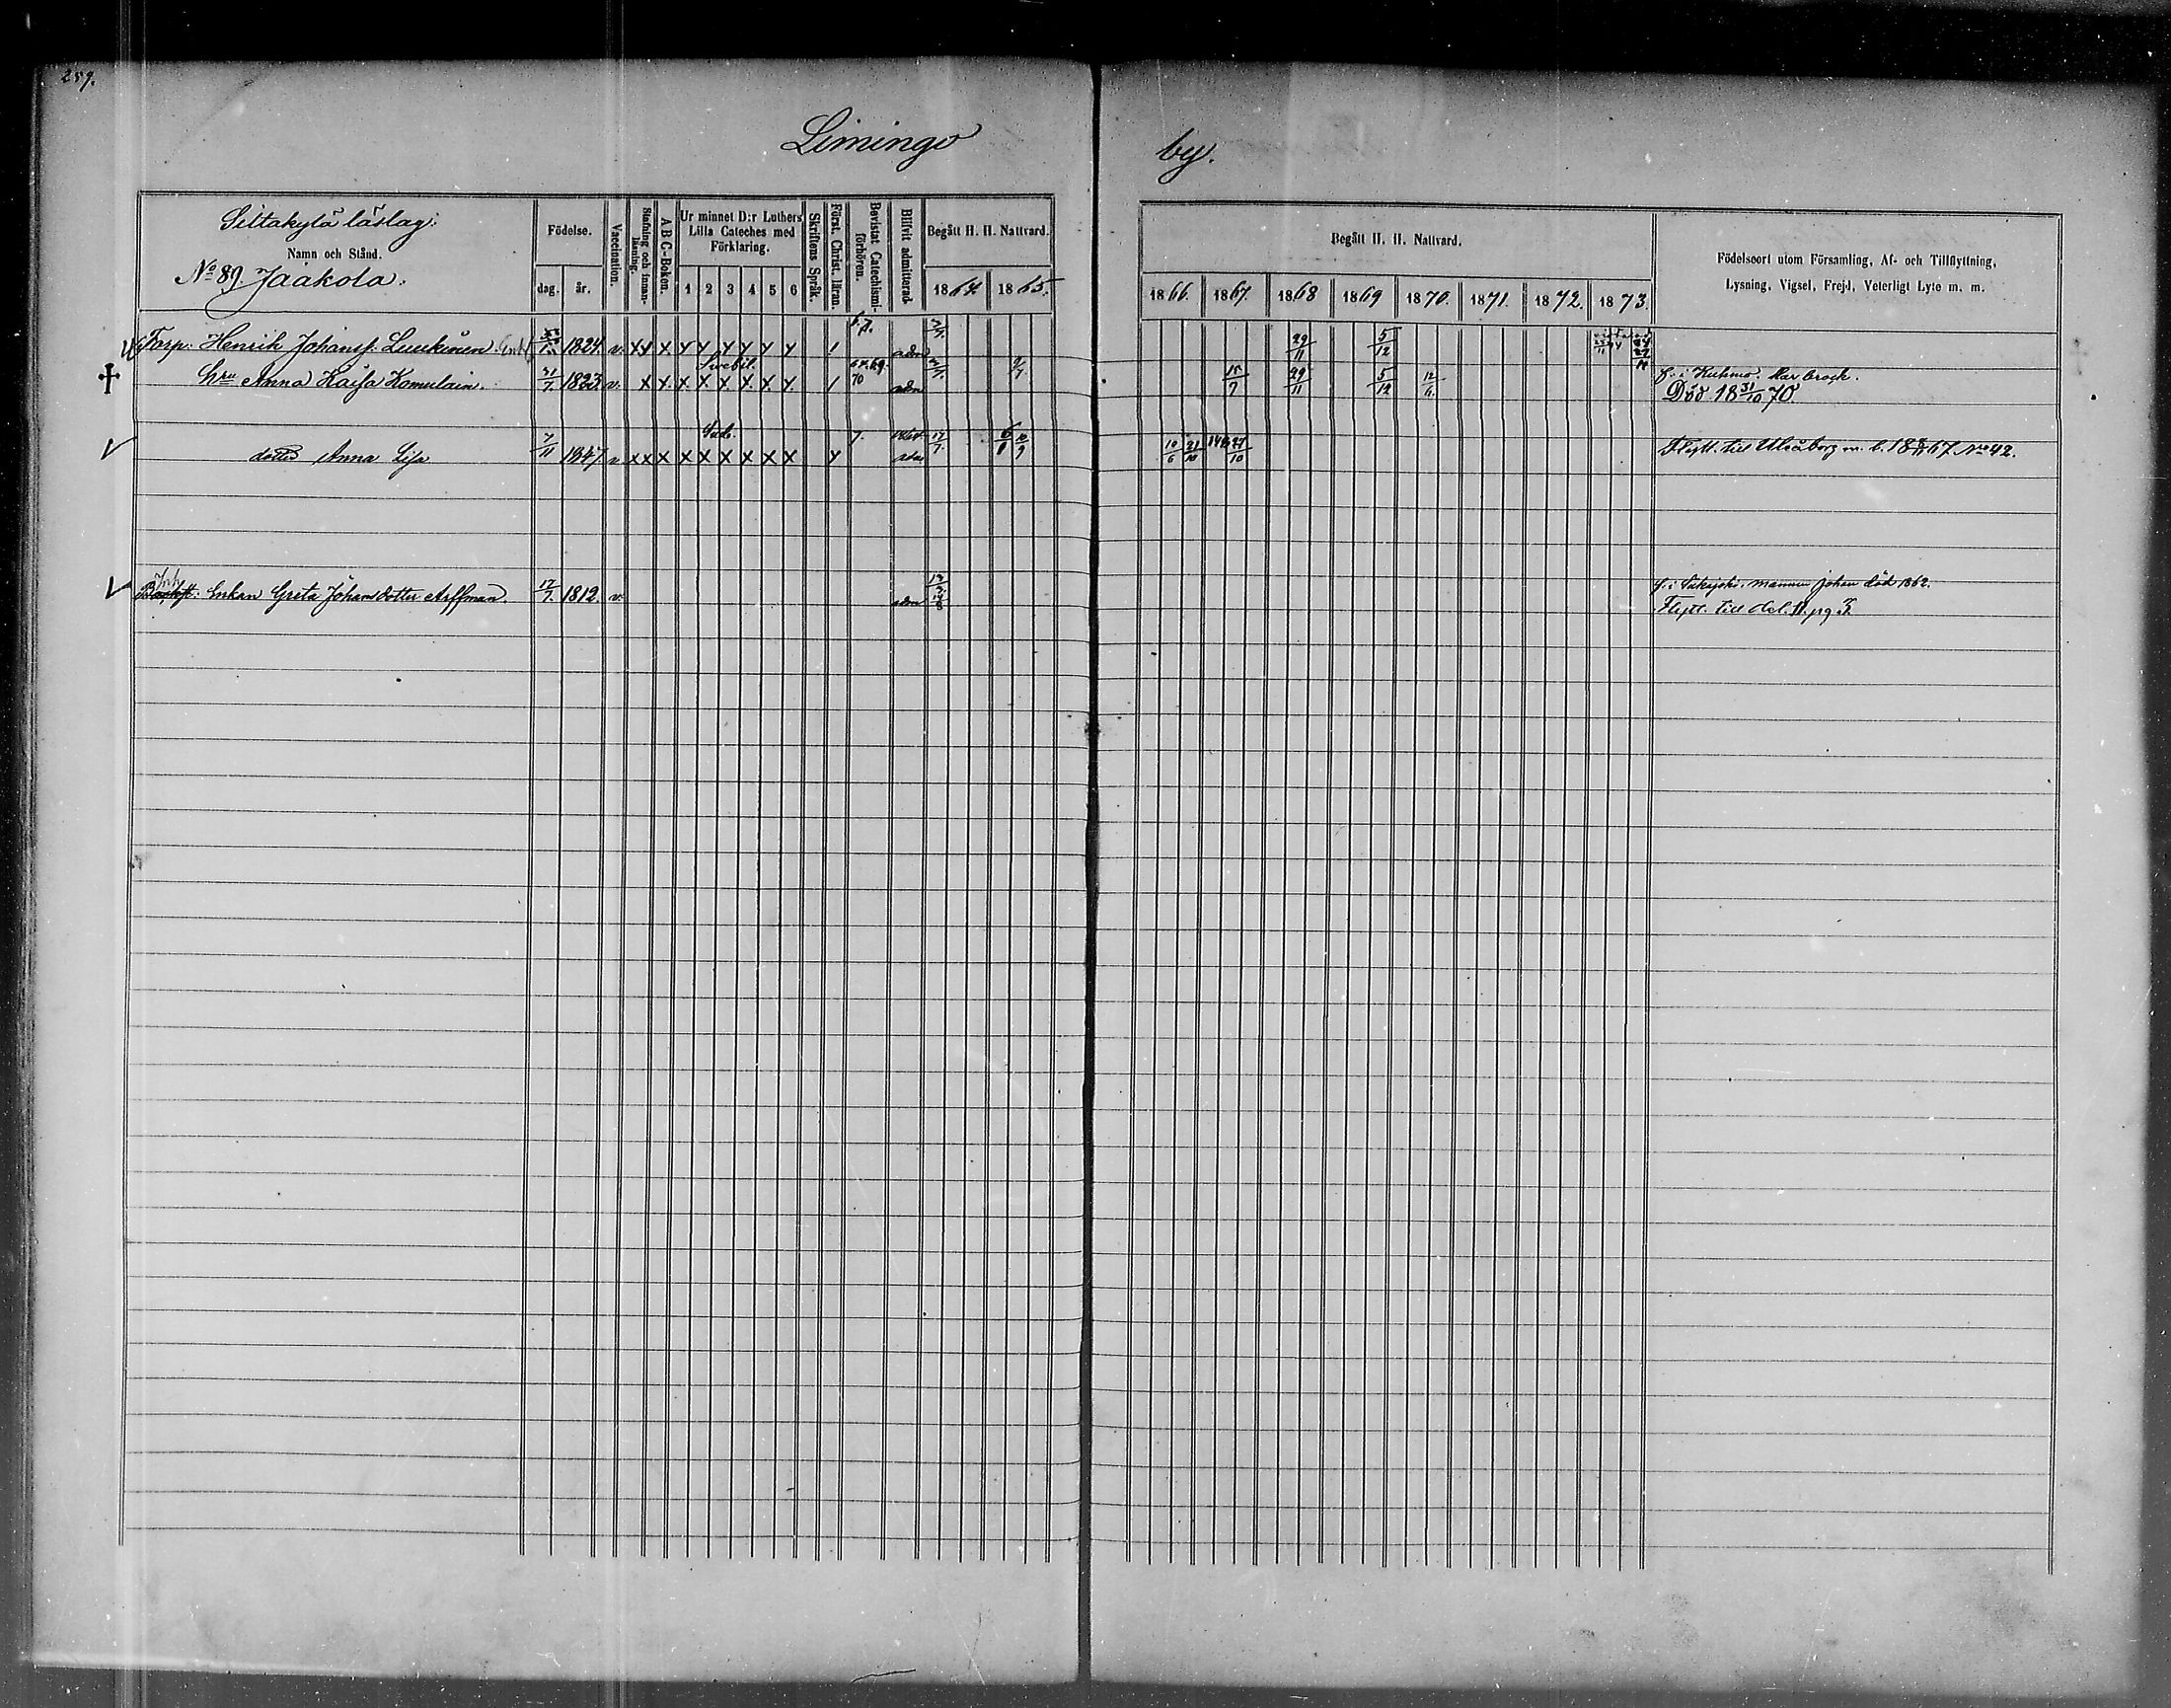 259.
Limingo by.
Sittakylä läslag:
Namn och Stånd.
No 89. Jaakola.
Födelse.
dag. år.
Vaccination.
Stafning och innan-läsning.
A B C-Boken.
Ur minnet D:r Luthers Lilla Cateches med Förklaring.
1 2 3 4 5 6
Skriftens Språk.
Först. Christ. läran.
Bevistat Catechismi-förhören.
Blifvit admitterad
Begått H. H. Nattvard.
1864. 1865.
Begått H. H. Nattvard.
1866. 1867. 1868 1869 1870. 1871. 1872. 1873.
Födelseort utom Församling, Af- och Tillflyttning,
Lysning, Vigsel, Frejd, Veterligt Lyte m. m.
Torp. Henrik Johanss. 1824. v. x x x x x x x x x / adm 29/11 5/12
Svebil.
hru Anna Kaisa Komulain. 31/7. 1823 v. x x x x x x x x / 70 adm 15/7 29/11 5/12 f. i Kuhmo. Har brock.
Död 18 31/10 70.
dotter Anna Lisa 7/11 1847 v x x x x x x x x x 7. adm 17/7. 10/9 10/6 21/10 27/10 Flytt. till Uleåborg m. b. 67 No 42.
Enkan Greta Johansdotter Arffman. 17/7. 1812. v. adm mannen Johan död 1862.
Flytt. till del. II. pg 3